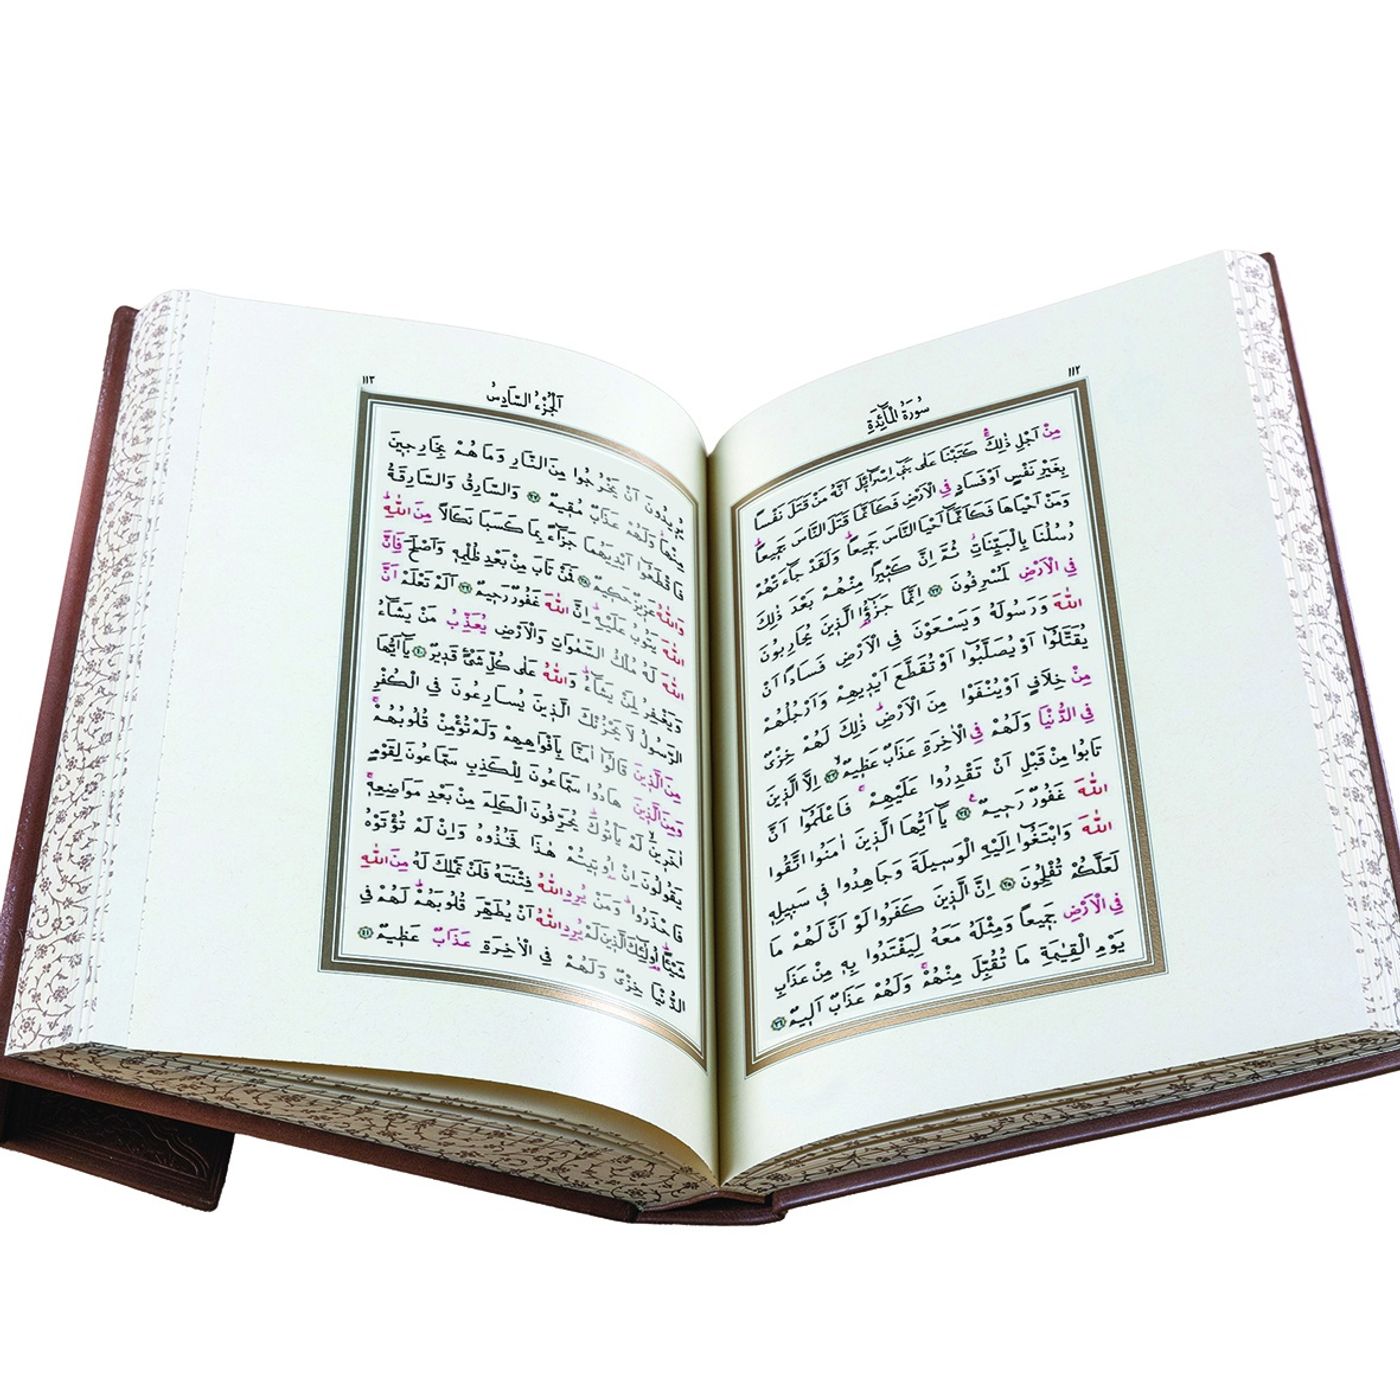 ١١٢
سُورَةُ الْمَآئِدَةِ
مِنْ اَجْلِ ذٰلِكَۚۛ كَتَبْنَا عَلٰى بَنٓي اِسْرَٓائ۪لَ اَنَّهُ مَنْ قَتَلَ نَفْسًا
بِغَيْرِ نَفْسٍ اَوْ فَسَادٍ فِي الْاَرْضِ فَكَاَنَّمَا قَتَلَ النَّاسَ جَم۪يعًاۜ
وَمَنْ اَحْيَاهَا فَكَاَنَّمَٓا اَحْيَا النَّاسَ جَم۪يعًاۜ وَلَقَدْ جَٓاءَتْهُمْ
رُسُلُنَا بِالْبَيِّنَاتِۘ ثُمَّ اِنَّ كَث۪يرًا مِنْهُمْ بَعْدَ ذٰلِكَ
فِي الْاَرْضِ لَمُسْرِفُونَ ﴿٣٢﴾ اِنَّمَا جَزٰٓؤُا الَّذ۪ينَ يُحَارِبُونَ
اللّٰهَ وَرَسُولَهُ وَيَسْعَوْنَ فِي الْاَرْضِ فَسَادًا اَنْ
يُقَتَّلُٓوا اَوْ يُصَلَّبُٓوا اَوْ تُقَطَّعَ اَيْد۪يهِمْ وَاَرْجُلُهُمْ
مِنْ خِلَافٍ اَوْ يُنْفَوْا مِنَ الْاَرْضِۜ ذٰلِكَ لَهُمْ خِزْيٌ
فِي الدُّنْيَا وَلَهُمْ فِي الْاٰخِرَةِ عَذَابٌ عَظ۪يمٌۙ ﴿٣٣﴾ اِلَّا الَّذ۪ينَ
تَابُوا مِنْ قَبْلِ اَنْ تَقْدِرُوا عَلَيْهِمْۚ فَاعْلَمُٓوا اَنَّ
اللّٰهَ غَفُورٌ رَح۪يمٌ۟ ﴿٣٤﴾ يَٓا اَيُّهَا الَّذ۪ينَ اٰمَنُوا اتَّقُوا
اللّٰهَ وَابْتَغُٓوا اِلَيْهِ الْوَس۪يلَةَ وَجَاهِدُوا ف۪ي سَب۪يلِه۪
لَعَلَّكُمْ تُفْلِحُونَ ﴿٣٥﴾ اِنَّ الَّذ۪ينَ كَفَرُوا لَوْ اَنَّ لَهُمْ مَا
فِي الْاَرْضِ جَم۪يعًا وَمِثْلَهُ مَعَهُ لِيَفْتَدُوا بِه۪ مِنْ عَذَابِ
يَوْمِ الْقِيٰمَةِ مَا تُقُبِّلَ مِنْهُمْۚ وَلَهُمْ عَذَابٌ اَل۪يمٌ ﴿٣٦﴾
١١٣
اَلْجُزْءُ السَّادِسُ
يُر۪يدُونَ اَنْ يَخْرُجُوا مِنَ النَّارِ وَمَا هُمْ بِخَارِج۪ينَ
مِنْهَاۘ وَلَهُمْ عَذَابٌ مُق۪يمٌ ﴿٣٧﴾ وَالسَّارِقُ وَالسَّارِقَةُ
فَاقْطَعُٓوا اَيْدِيَهُمَا جَزَٓاءً بِمَا كَسَبَا نَكَالًا مِنَ اللّٰهِۜ
وَاللّٰهُ عَز۪يزٌ حَك۪يمٌ ﴿٣٨﴾ فَمَنْ تَابَ مِنْ بَعْدِ ظُلْمِه۪ وَاَصْلَحَ فَاِنَّ
اللّٰهَ يَتُوبُ عَلَيْهِۜ اِنَّ اللّٰهَ غَفُورٌ رَح۪يمٌ ﴿٣٩﴾ اَلَمْ تَعْلَمْ اَنَّ
اللّٰهَ لَهُ مُلْكُ السَّمٰوَاتِ وَالْاَرْضِۜ يُعَذِّبُ مَنْ يَشَٓاءُ
وَيَغْفِرُ لِمَنْ يَشَٓاءُۜ وَاللّٰهُ عَلٰى كُلِّ شَيْءٍ قَد۪يرٌ ﴿٤٠﴾ يَٓا اَيُّهَا
الرَّسُولُ لَا يَحْزُنْكَ الَّذ۪ينَ يُسَارِعُونَ فِي الْكُفْرِ
مِنَ الَّذ۪ينَ قَالُٓوا اٰمَنَّا بِاَفْوَاهِهِمْ وَلَمْ تُؤْمِنْ قُلُوبُهُمْۚۛ
وَمِنَ الَّذ۪ينَ هَادُوا سَمَّاعُونَ لِلْكَذِبِ سَمَّاعُونَ لِقَوْمٍ
اٰخَر۪ينَۙ لَمْ يَأْتُوكَۜ يُحَرِّفُونَ الْكَلِمَ مِنْ بَعْدِ مَوَاضِعِه۪ۚ
يَقُولُونَ اِنْ اُو۫ت۪يتُمْ هٰذَا فَخُذُوهُ وَاِنْ لَمْ تُؤْتَوْهُ
فَاحْذَرُواۜ وَمَنْ يُرِدِ اللّٰهُ فِتْنَتَهُ فَلَنْ تَمْلِكَ لَهُ مِنَ اللّٰهِ
شَيْـًٔاۜ اُو۬لٰٓئِكَ الَّذ۪ينَ لَمْ يُرِدِ اللّٰهُ اَنْ يُطَهِّرَ قُلُوبَهُمْۜ لَهُمْ فِي
الدُّنْيَا خِزْيٌ وَلَهُمْ فِي الْاٰخِرَةِ عَذَابٌ عَظ۪يمٌ ﴿٤١﴾